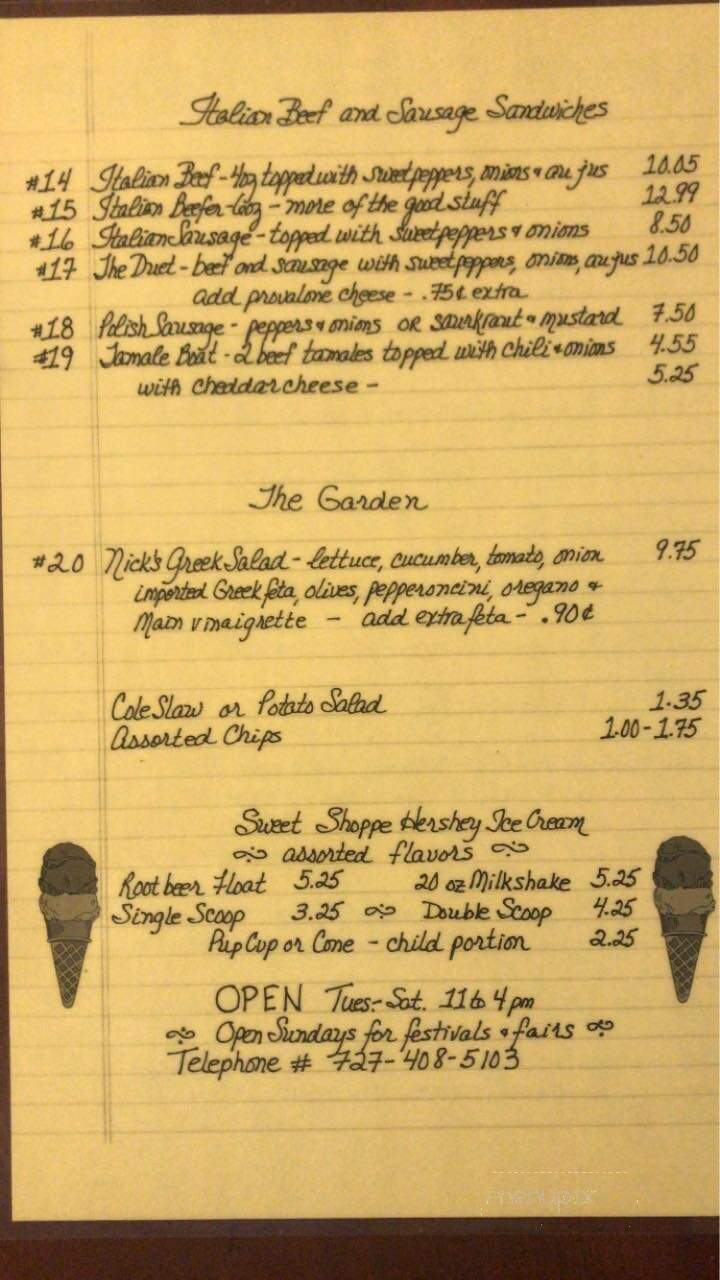 Italian Beef and Sausage Sandwiches
#14 Italian Beef - 4oz topped with sweet peppers, onions & au jus 10.05
#15 Italian Beefer - 6oz - more of the good stuff 12.99
#16 Italian Sausage - topped with sweet peppers & onions 8.50
#17 The Duet - beef and sausage with sweet peppers, onions, au jus 10.50
add provalone cheese - .75¢ extra
#18 Polish Sausage - peppers & onions OR saurkraut & mustard 7.50
#19 Tamale Boat - 2 beef tamales topped with chili & onions 4.55
with cheddar cheese - 5.25
The Garden
#20 Nick's Greek Salad - lettuce, cucumber, tomato, onion 9.75
imported Greek feta, olives, pepperoncini, oregano &
Main vinaigrette - add extra feta - .90¢
Cole Slaw or Potato Salad 1.35
Assorted Chips 1.00 - 1.75
Sweet Shoppe Hershey Ice Cream
assorted flavors
Rootbeer Float 5.25 20 oz Milkshake 5.25
Single Scoop 3.25 Double Scoop 4.25
Pup Cup or Cone - child portion 2.25
OPEN Tues.- Sat. 11 to 4 pm
Open Sundays for festivals & fairs
Telephone # 727-408-5103
menupix